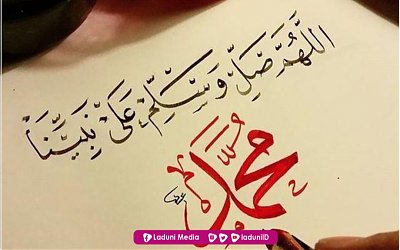 اللَّهُمَّ صَلِّ وَسَلِّمْ عَلَىٰ نَبِيِّنَا
مُحَمَّد
Laduni Media laduniID